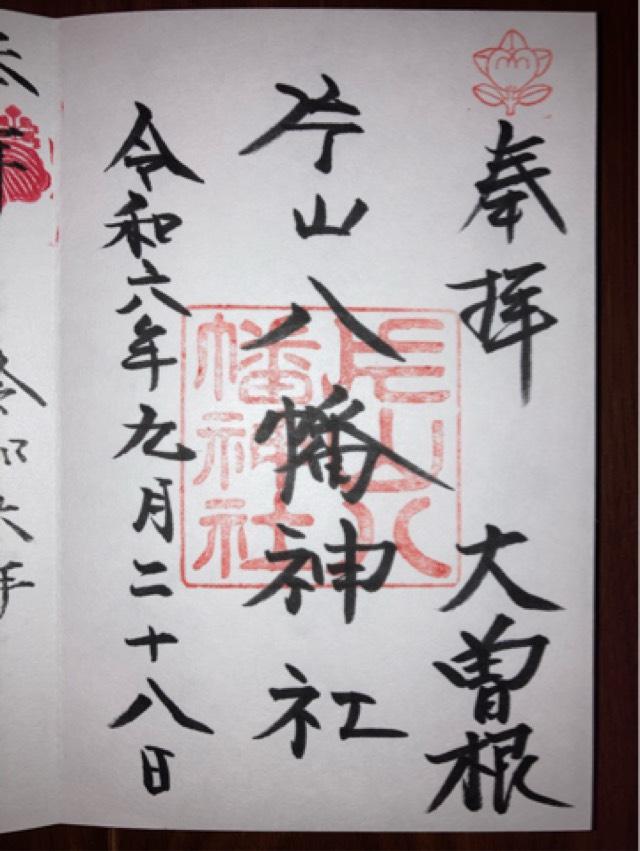 奉拝 大曽根
片山八幡神社
令和六年九月二十八日
片山八
幡神社
令和六年